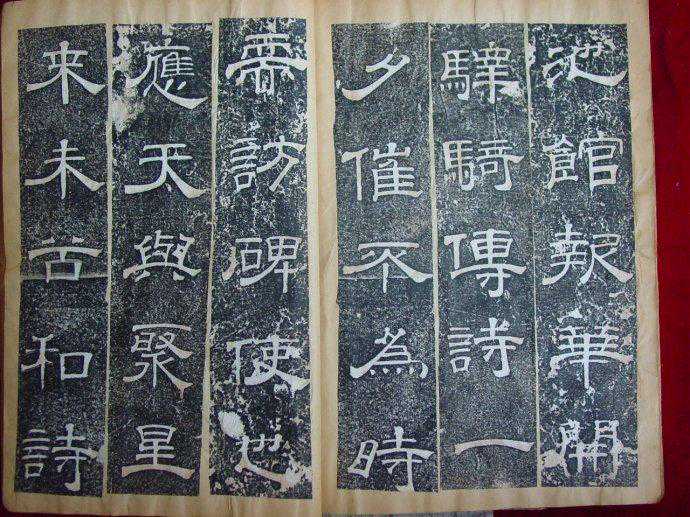 池館報華開
驛騎傳詩一
夕催不為時
帝訪碑使也
應天與聚星
来未古和詩